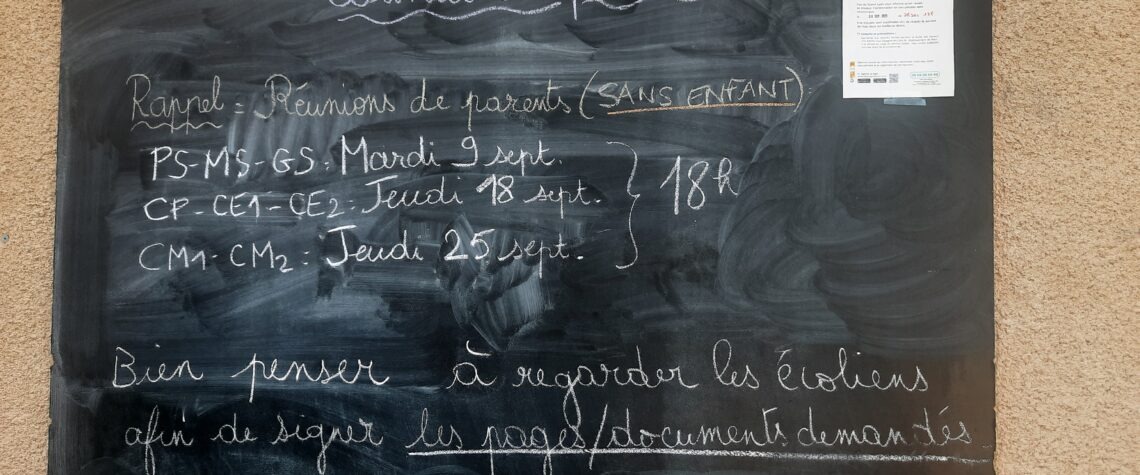 Rappel : Réunions de parents (SANS ENFANT)
PS-MS-GS : Mardi 9 sept.
CP-CE1-CE2 : Jeudi 18 sept.
CM1-CM2 : Jeudi 25 sept.
18h
Bien penser à regarder les écoliens
afin de signer les pages/documents demandés